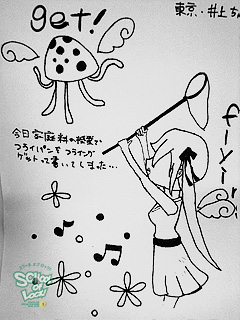 get!
東京・井上ち
今日家庭科の授業で
フライパンをフライング
ゲットって書いてしまった…
flyin
SCHOOL
OF
LOCK!